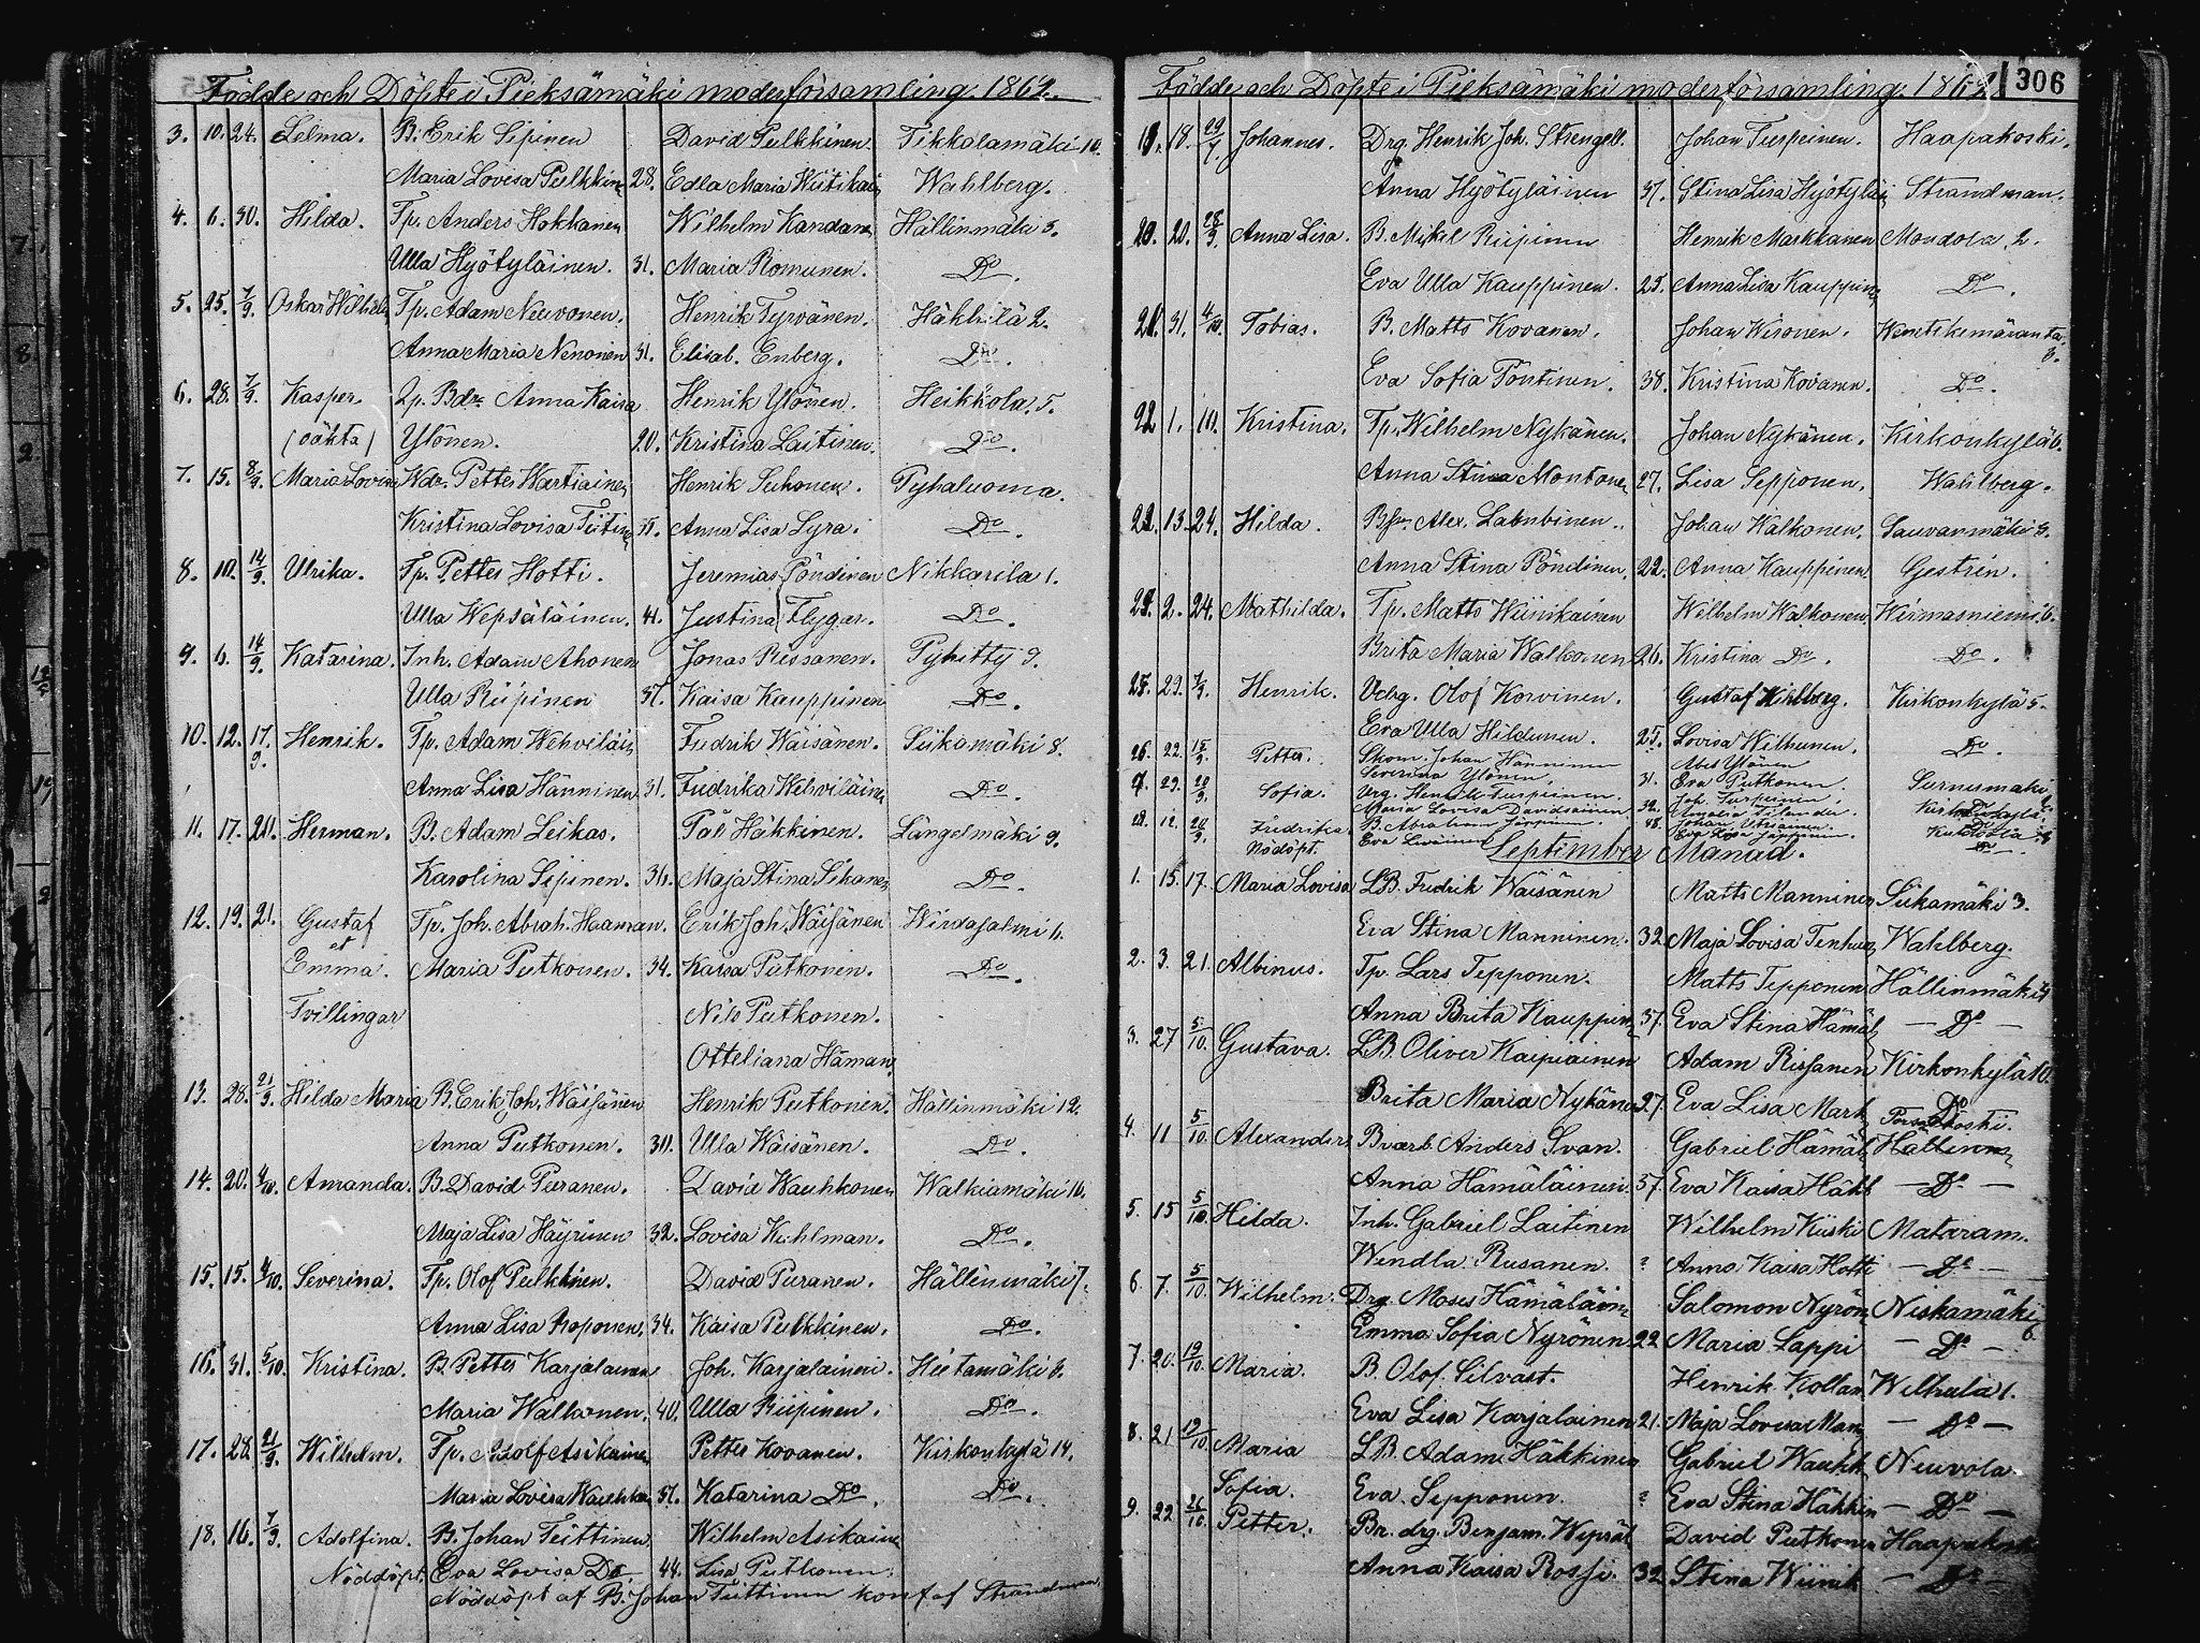 Födde och Döpte i Pieksämäki moderförsamling. 1862.
3. 10. 24. Selma. B. Erik Sipinen David Pulkkinen. Tikkalamäki 10.
Maria Lovisa Pulkkin 28. Edla Maria Wiitikai Wahlberg.
4. 6. 30. Hilda. Tp. Anders Hokkanen Wilhelm Kandan Hällinmäki 3.
Ulla Hyötyläinen. 31. Maria Romunen. Do.
5. 25. 7/9. Oskar Wilhelm Tp. Adam Neuvonen. Henrik Tyrvänen. Häkkilä 2.
Anna Maria Nenonen 31. Elisab. Enberg. Do.
6. 28. 7/9. Kasper. Anna Kaisa Henrik Ylönen. Heikkola. 5.
(oäkta) Ylönen. 20. Kristina Laitinen. Do.
7. 15. 8/9. Maria Lovisa Petter Wartiainen Henrik Suhonen. Pyhäluoma.
Kristina Lovisa Tiitin Anna Lisa Lyra. Do.
8. 10. 14/9. Ulrika. Tp. Petter Hotti. Jeremias Pöndinen Nikkarila 1.
Ulla Wepsäläinen. 41. Justina Flygar. Do.
9. 6. 14/9. Katarina. Inh. Adam Ahonen Jonas Rissanen. Pyhitty 9.
Ulla Riipinen 37. Kaisa Kauppinen Do.
10. 12. 17/9. Henrik. Tp. Adam Wehviläin Fredrik Wäisänen. Siikamäki 8.
Anna Lisa Hänninen 31. Fredrika Wehviläine Do.
11. 17. 20. Herman. B. Adam Leikas. Pål Häkkinen. Längelmäki 9.
Karolina Sipinen. 36. Maja Stina Sikanen Do.
12. 19. 21. Gustaf Tp. Joh. Abrah. Haaman. Erik Joh. Wäisänen Wirdasalmi 6.
et
Emma. Maria Putkonen. 34. Kaisa Putkonen. Do.
Tvillingar Nils Putkonen.
Otteliana Häman
13. 28. 21/9. Hilda Maria B. Erik Joh. Wäisänen Henrik Putkonen. Hällinmäki 12.
Anna Putkonen. 30. Ulla Wäisänen. Do.
14. 20. 4/10. Amanda. B. David Puranen. David Wauhkonen Walkiamäki 10.
Maja Lisa Häyrinen 32. Lovisa Kuhlman. Do.
15. 15. 4/10. Severina. Tp. Olof Pulkkinen. David Puranen. Hällinmäki 7.
Anna Lisa Roponen. 34. Kaisa Pulkkinen. Do.
16. 31. 5/10. Kristina. B. Petter Karjalainen Joh. Karjalainen. Hietamäki 8.
Maria Walkonen. 40. Ulla Riipinen. Do.
17. 28. 21/9. Wilhelm. Tp. Adolf Asikainen Petter Kovanen. Kirkonkylä 14.
Maria Lovisa Wauhko 37. Katarina Do. Do.
18. 16. 7/9. Adolfina. B. Johan Teittinen Wilhelm Asikaine
Nöddöpt. Eva Lovisa Do 44. Lisa Putkonen.
Nöddöpt af B. Johan Teittinen konf af Strandman.
Födde och Döpte i Pieksämäki moderförsamling. 1862 306
19. 18. Johannes. Drg. Henrik Joh. Strengell. Johan Turpeinen. Haapakoski.
Anna Hyötyläinen 37. Stina Lisa Hyötyläi Strandman.
20. 20. 28/9. Anna Lisa. B. Mikel Riipinen Henrik Markkanen Mondola 2.
Eva Ulla Kauppinen. 25. Anna Lisa Kauppine Do.
21. 31. 4/10. Tobias. B. Matts Kovanen. Johan Wironen.
Eva Sofia Pöntinen. 38. Kristina Kovanen. Do.
22. 1. 10. Kristina. Tp. Wilhelm Nykänen. Johan Nykänen. Kirkonkylä 6.
Anna Stina Montonen 27. Lisa Sepponen. Wahlberg.
13. 24. Hilda. Alex. Johan Walkonen. Sauvanmäki 8.
Anna Stina Pöndinen. 22. Anna Kauppinen. Gestrin.
2. 24. Mathilda. Tp. Matts Wiinikainen Wilhelm Walkonen. Wirmasniemi 6.
Brita Maria Walkonen 26. Kristina Do. Do.
29. Henrik. Olof Korvinen. Gustaf Kihlberg. Kirkonkylä 5.
Eva Ulla Hildunen. 25. Lovisa Wilhunen. Do.
26. 22. 15/9. Petter. Skom. Johan Hänninen Abel Ylönen
Severina Ylönen. 31. Eva Putkonen. Surnumäki
29. Sofia. Turpeinen. Joh. Turpeinen.
Maria Lovisa Davidsainen 32. Amalia
12. Fredrika B. Abraham Jäppinen. Johan
Nödöpt. Eva Eva Lisa Jäppinen. Do
September Månad.
1. 15. 17. Maria Lovisa LB. Fredrik Wäisänen Matts Manninen Siikamäki 3.
Eva Stina Manninen. 32 Maja Lovisa Tenhun Wahlberg.
2. 3. 21. Albinus. Tp. Lars Tepponen. Matts Tepponen Hällinmäki 4
Anna Brita Kauppin 37. Eva Stina Hämäl Do
3. 27 5/10. Gustava. LB. Oliver Kaipiainen Adam Rissanen Kirkonkylä 10.
Brita Maria Nykäne 27. Eva Lisa Mark Do
4. 11 5/10. Alexander Bvarb. Anders Svan. Gabriel Hämäl Hällinm
Anna Hämäläinen. 37. Eva Kaisa Häkk Do
5. 15 5/10. Hilda. Inh. Gabriel Laitinen Wilhelm Kiiski Mataram.
Wendla Rusanen. ? Anna Kaisa Hotti Do
6. 7. 5/10. Wilhelm. Drg. Moses Hämäläine Salomon Nyrön Niskamäki 6.
Emma Sofia Nyrönen 22 Maria Lappi Do
7. 20. 19/10. Maria. B. Olof Silvast. Henrik Kollan Wilhula 1.
Eva Lisa Karjalainen 21. Maja Lovisa Man Do
8. 21 19/10 Maria LB. Adam Häkkinen Gabriel Wauhk Neuvola
Sofia. Eva Sepponen. ? Eva Stina Häkkin Do
9. 22 26/10. Petter. Br. drg. Benjam. Wepsäl David Putkonen Haapakoski
Anna Kaisa Rossi. 32 Stina Wiinik Do